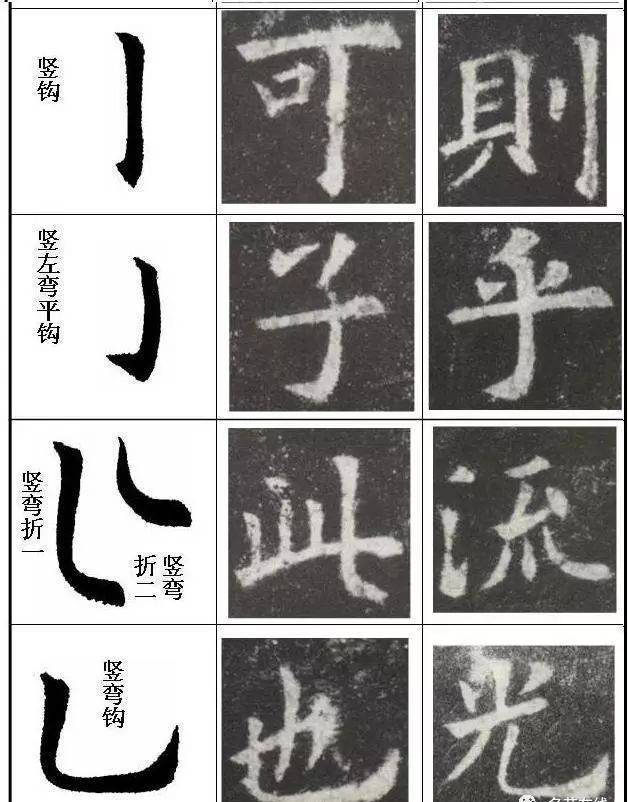 竖钩
可
則
竖左弯平钩
子
乎
竖弯折一
竖弯折二
此
流
竖弯钩
也
光